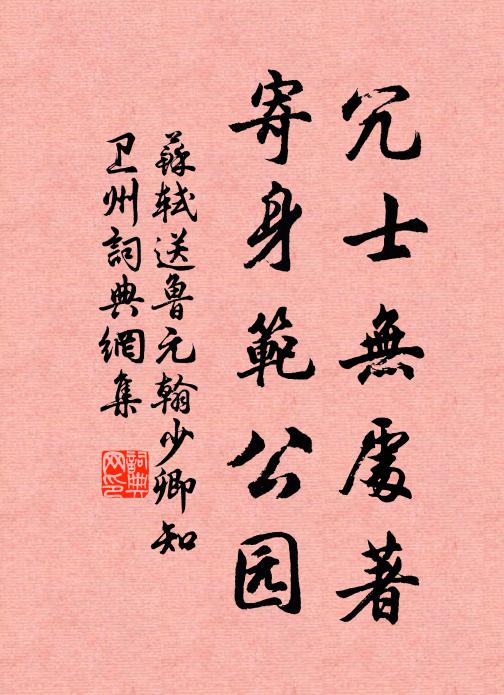 冗士無處著
寄身範公园
蘇轼送鲁元翰少卿知
卫州詞典網集
詞典网印